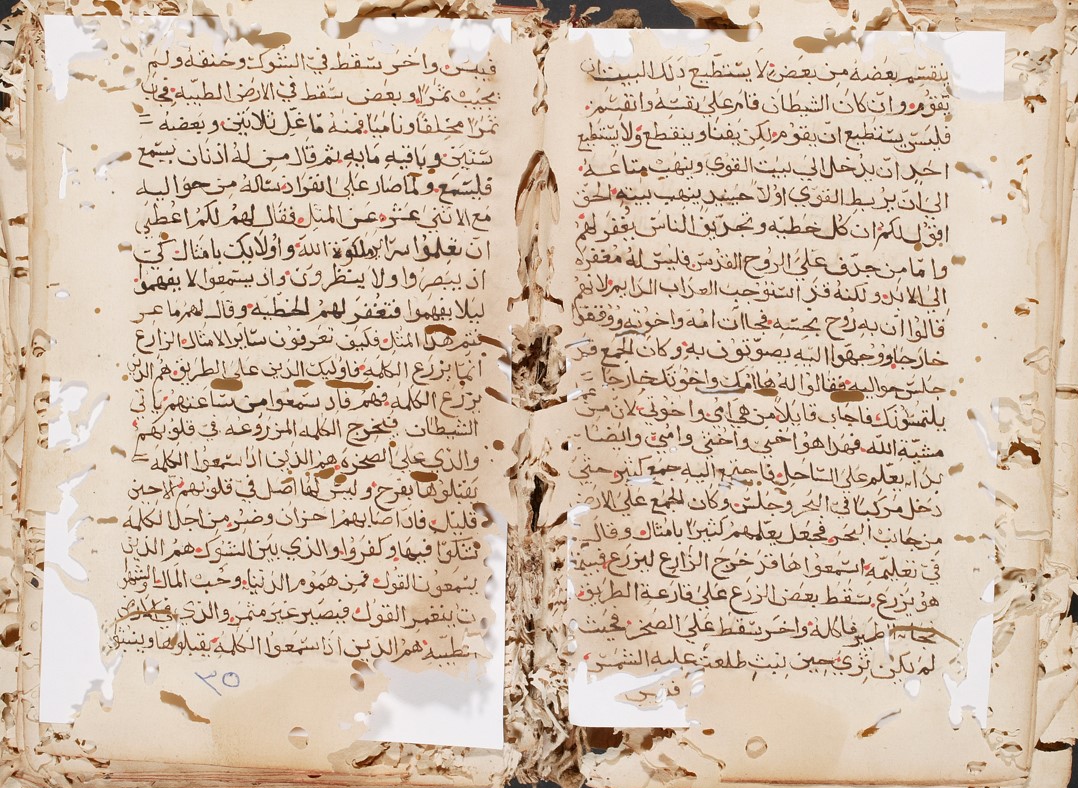 ينقسم بعضه من بعض لا يستطيع ذلك البيت ان
يقوم وان كان الشيطان قام على نفسه وانقسم
فليس يستطيع ان يقوم لكن يفنا وينقطع ولا يستطيع
احد ان يدخل الى بيت القوي وينهب متاعه
الى ان يربط القوي اولا حينيذ ينهب بيته الحق
اقول لكم ان كل خطيه وتجديف الناس يغفر لهم
واما من جدف على الروح القدس فليس له مغفره
الى الابد ولكنه قد استوجب العذاب الدايم لانهم
قالوا ان به روح نجسه فجاات امه واخوته ووقفوا
خارجا ووجهوا اليه يصوتون به وكان الجمع قد
جلس حواليه فقالوا له هاامك واخوتك خارجا
يلتمسونك فاجاب قايلا من هي امي واخوتي لان من
مشيه الله فهذا هو اخي واختي وامي وايضا
بدا يعلم على الساحل فاجتمع اليه جمع كثير حتى
دخل مركبا في البحر وجلس وكان الجمع على الارض
من جانب البحر فجعل يعلمهم كثيرا بامثال وقال
في تعليمه اسمعوا هاقد خرج الزارع ليزرع فبينه
هو يزرع سقط بعض الزرع على قارعة الطريق
فجا طير فاكله واخر سقط على الصخر فحيث
لم تكن ثري حين نبت طلعت عليه الشمس
فيبس
فيبس واخر سقط في الشوك وخنقه ولم
يجيب ثمرا وبعض سقط في الارض الطيبه فجاب
ثمرا مختلفا وناميا فمنه ما غل ثلاثين وبعضه
ستين وباقيه مايه ثم قال من له اذنان يسمع
فليسمع ولما صار على انفراد ساله من حواليه
مع الاثني عشر عن المثل فقال لهم لكم اعطي
ان تعلموا سراير ملكوة الله واولايك بامثال كي
اذ يبصروا ولا ينظرون واذ يسمعوا لا يفهموا
ليلا يفهموا فتغفر لهم الخطيه وقال لهم ما عر
فتم هذا المثل فكيف تعرفون ساير الامثال الزارع
انما يزرع الكلمه فاوليك الذين على الطريق هم الذين
يزرع الكلمه فهم فاذ سمعوا من ساعتهم ياتي
الشيطان فيخرج الكلمه المزروعه في قلوبهم
والذي على الصخر هم الذين اذا سمعوا الكلمه
يقبلوها بفرح وليس لها اصل في قلوبهم لا حين
قليل فاذا اصابهم احزان وضر من اجل الكلمه
فشكوا فيها وكفروا والذي بين الشوك هم الذين
يسمعون القول فمن هموم الدنيا وحب المال
القول فيصير غير مثمر والذي
طيبه هم الذين اذا سمعوا الكلمه يقبلوها
٣٥